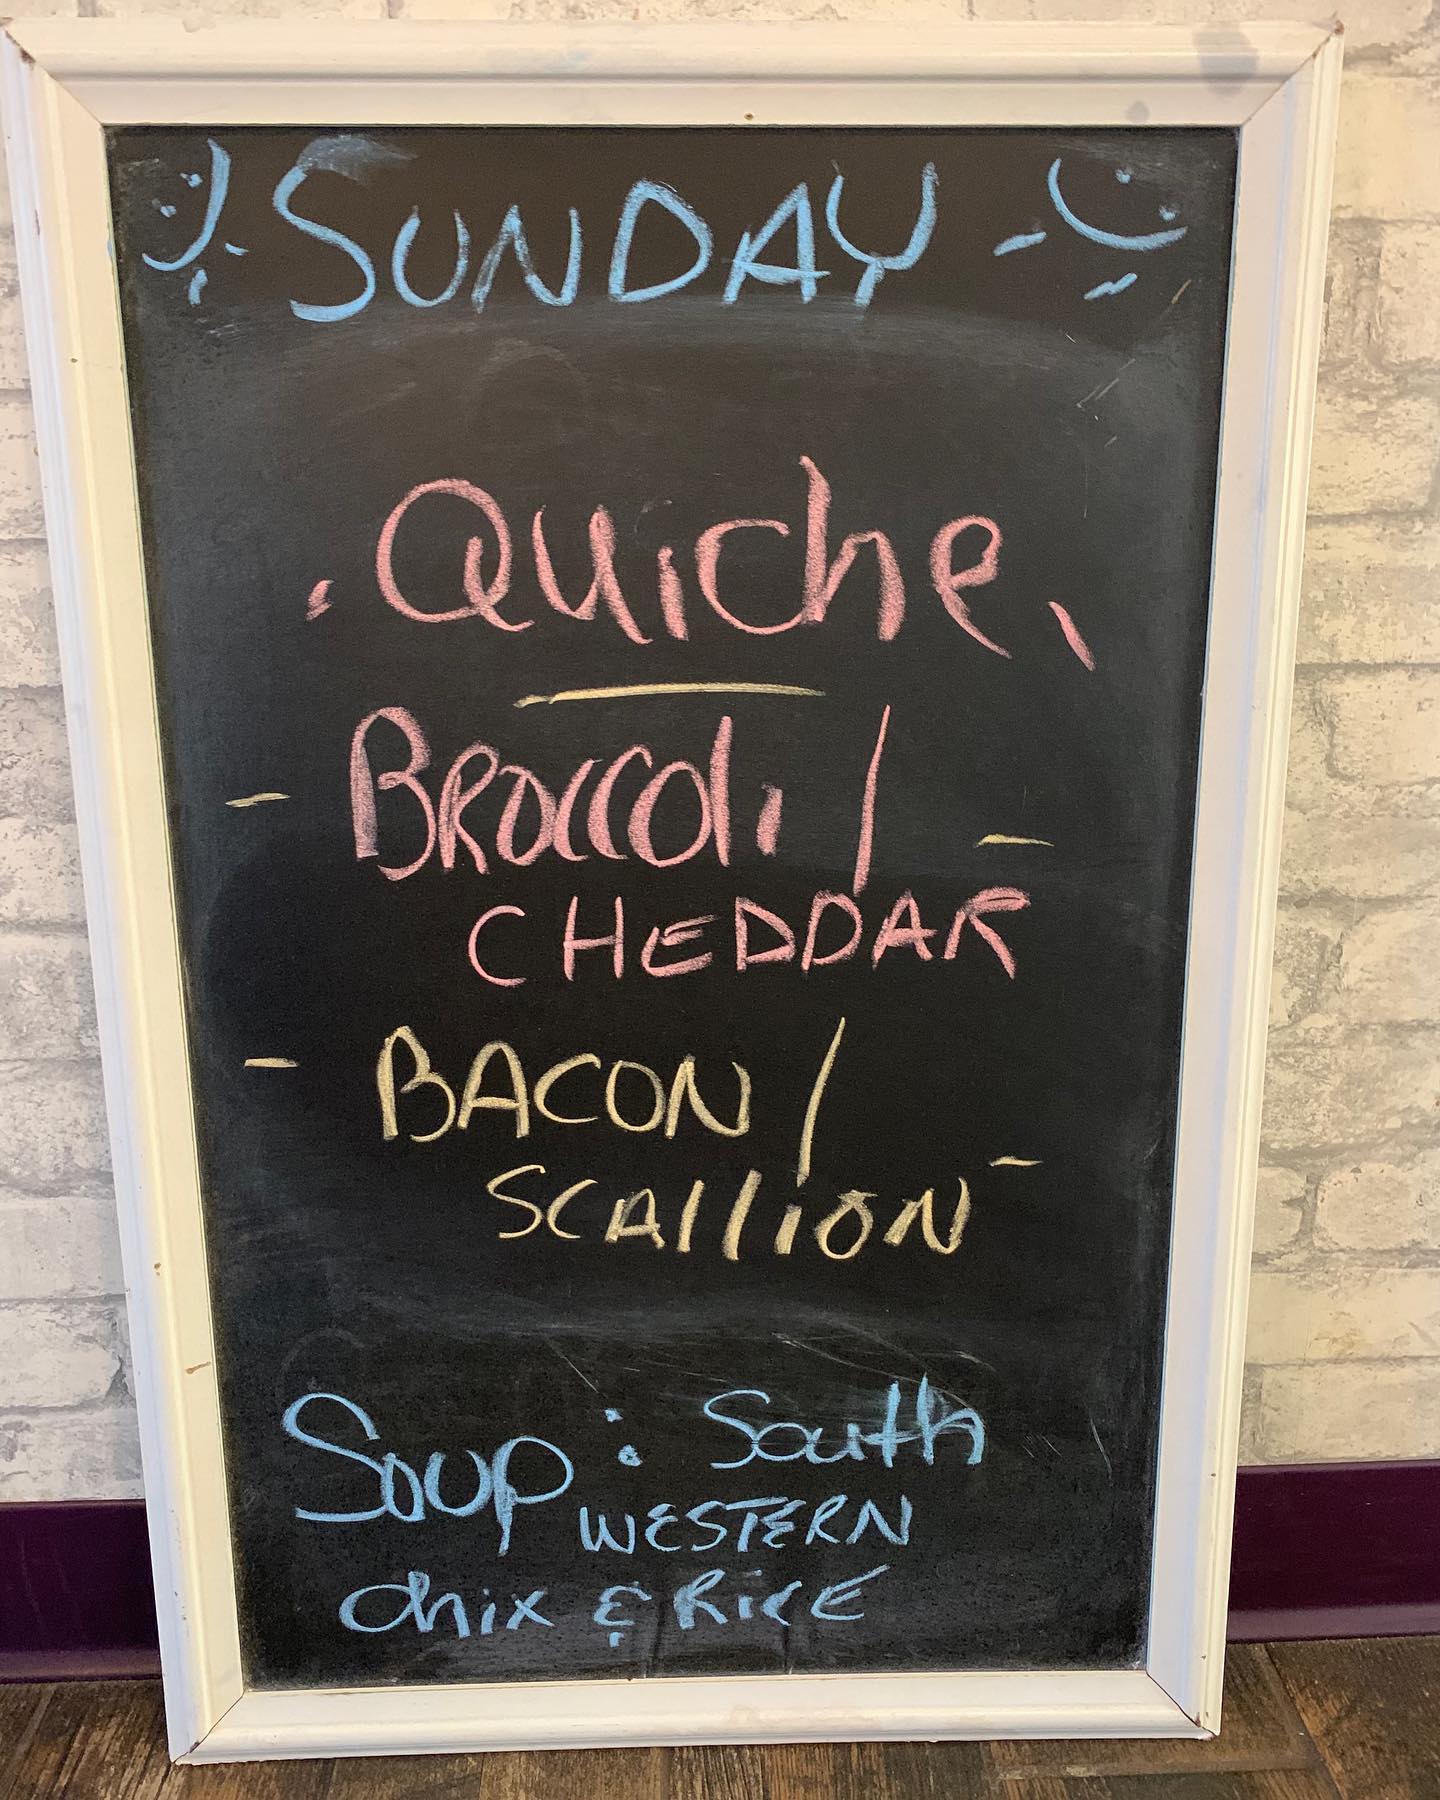 SUNDAY
Quiche
- BROCCOli / -
CHEDDAR
- BACON /
SCAllION -
Soup : South
WESTERN
Chix & RICE